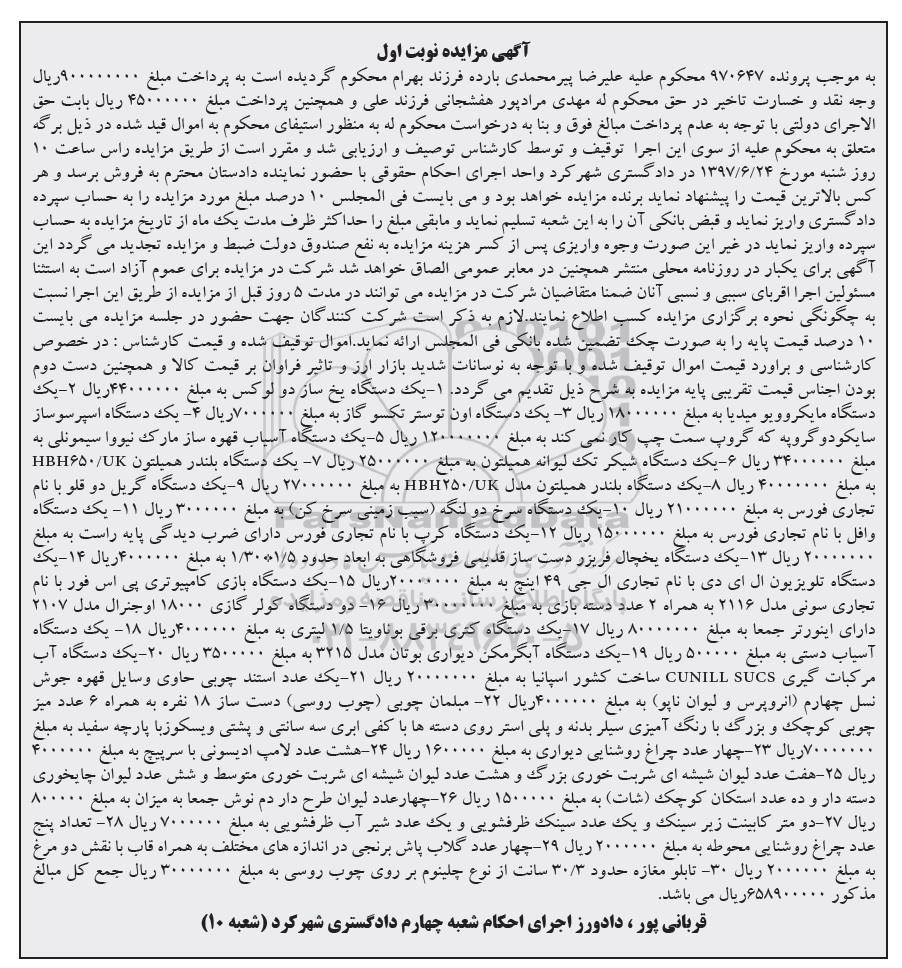 آگهی مزایده نوبت اول
به موجب پرونده ۹۷۰۶۴۷ محکوم علیه علیرضا پیرمحمدی بارده فرزند بهرام محکوم گردیده است به پرداخت مبلغ ۹۰۰۰۰۰۰۰۰ریال
وجه نقد و خسارت تاخیر در حق محکوم له مهدی مرادپور هفشجانی فرزند علی و همچنین پرداخت مبلغ ۴۵۰۰۰۰۰۰ ریال بابت حق
الاجرای دولتی با توجه به عدم پرداخت مبالغ فوق و بنا به درخواست محکوم له به منظور استیفای محکوم به اموال قید شده در ذیل برگه
متعلق به محکوم علیه از سوی این اجرا توقیف و توسط کارشناس توصیف و ارزیابی شد و مقرر است از طریق مزایده راس ساعت ۱۰
روز شنبه مورخ ۱۳۹۷/۶/۲۴ در دادگستری شهرکرد واحد اجرای احکام حقوقی با حضور نماینده دادستان محترم به فروش برسد و هر
کس بالاترین قیمت را پیشنهاد نماید برنده مزایده خواهد بود و می بایست فی المجلس ۱۰ درصد مبلغ مورد مزایده را به حساب سپرده
دادگستری واریز نماید و قبض بانکی آن را به این شعبه تسلیم نماید و مابقی مبلغ را حداکثر ظرف مدت یک ماه از تاریخ مزایده به حساب
سپرده واریز نماید در غیر این صورت وجوه واریزی پس از کسر هزینه مزایده به نفع صندوق دولت ضبط و مزایده تجدید می گردد این
آگهی برای یکبار در روزنامه محلی منتشر همچنین در معابر عمومی الصاق خواهد شد شرکت در مزایده برای عموم آزاد است به استثنا
مسئولین اجرا اقربای سببی و نسبی آنان ضمنا متقاضیان شرکت در مزایده می توانند در مدت ۵ روز قبل از مزایده از طریق این اجرا نسبت
به چگونگی نحوه برگزاری مزایده کسب اطلاع نمایند.لازم به ذکر است شرکت کنندگان جهت حضور در جلسه مزایده می بایست
۱۰ درصد قیمت پایه را به صورت چک تضمین شده بانکی فی المجلس ارائه نماید.اموال توقیف شده و قیمت کارشناس : در خصوص
کارشناسی و براورد قیمت اموال توقیف شده و با توجه به نوسانات شدید بازار ارز و تاثیر فراوان بر قیمت کالا و همچنین دست دوم
بودن اجناس قیمت تقریبی پایه مزایده به شرح ذیل تقدیم می گردد. ۱-یک دستگاه یخ ساز دو لوکس به مبلغ ۴۴۰۰۰۰۰۰ریال ۲-یک
دستگاه مایکروویو میدیا به مبلغ ۱۸۰۰۰۰۰۰ ریال ۳- یک دستگاه اون توستر تکسو گاز به مبلغ ۷۰۰۰۰۰۰ریال ۴- یک دستگاه اسپرسوساز
سایکودوگروپه که گروپ سمت چپ کار نمی کند به مبلغ ۱۲۰۰۰۰۰۰۰ ریال ۵-یک دستگاه آسیاب قهوه ساز مارک نیووا سیمونلی به
مبلغ ۳۴۰۰۰۰۰۰ ریال ۶-یک دستگاه شیکر تک لیوانه همیلتون به مبلغ ۲۵۰۰۰۰۰۰ ریال ۷- یک دستگاه بلندر همیلتون HBH۶۵۰/UK
به مبلغ ۴۰۰۰۰۰۰۰ ریال ۸-یک دستگاه بلندر همیلتون مدل HBH۲۵۰/UK به مبلغ ۲۷۰۰۰۰۰۰ ریال ۹-یک دستگاه گریل دو قلو با نام
تجاری فورس به مبلغ ۲۱۰۰۰۰۰۰ ریال ۱۰-یک دستگاه سرخ دو لنگه (سیب زمینی سرخ کن) به مبلغ ۳۰۰۰۰۰۰ ریال ۱۱- یک دستگاه
وافل با نام تجاری فورس به مبلغ ۱۵۰۰۰۰۰۰ ریال ۱۲-یک دستگاه کرپ با نام تجاری فورس دارای ضرب دیدگی پایه راست به مبلغ
۲۰۰۰۰۰۰۰ ریال ۱۳-یک دستگاه یخچال فریزر دست ساز قدیمی فروشگاهی به ابعاد حدود ۱/۵*۱/۳۰ به مبلغ ۴۰۰۰۰۰۰ریال ۱۴-یک
دستگاه تلویزیون ال ای دی با نام تجاری ال جی ۴۹ اینچ به مبلغ ۲۰۰۰۰۰۰۰ریال ۱۵-یک دستگاه بازی کامپیوتری پی اس فور با نام
تجاری سونی مدل ۲۱۱۶ به همراه ۲ عدد دسته بازی به مبلغ ۳۰۰۰۰۰۰۰ ریال ۱۶- دو دستگاه کولر گازی ۱۸۰۰۰ اوجنرال مدل ۲۱۰۷
دارای اینورتر جمعا به مبلغ ۸۰۰۰۰۰۰۰ ریال ۱۷-یک دستگاه کتری برقی بوناویتا ۱/۵ لیتری به مبلغ ۴۰۰۰۰۰۰ریال ۱۸- یک دستگاه
آسیاب دستی به مبلغ ۵۰۰۰۰۰ ریال ۱۹-یک دستگاه آبگرمکن دیواری بوتان مدل ۳۲۱۵ به مبلغ ۳۵۰۰۰۰۰ ریال ۲۰-یک دستگاه آب
مرکبات گیری CUNILL SUCS ساخت کشور اسپانیا به مبلغ ۲۰۰۰۰۰۰۰ ریال ۲۱-یک عدد استند چوبی حاوی وسایل قهوه جوش
نسل چهارم (ائروپرس و لیوان ناپو) به مبلغ ۴۰۰۰۰۰۰ریال ۲۲- مبلمان چوبی (چوب روسی) دست ساز ۱۸ نفره به همراه ۶ عدد میز
چوبی کوچک و بزرگ با رنگ آمیزی سیلر بدنه و پلی استر روی دسته ها با کفی ابری سه سانتی و پشتی ویسکوزبا پارچه سفید به مبلغ
۷۰۰۰۰۰۰۰ریال ۲۳-چهار عدد چراغ روشنایی دیواری به مبلغ ۱۶۰۰۰۰۰ ریال ۲۴-هشت عدد لامپ ادیسونی با سرپیچ به مبلغ ۴۰۰۰۰۰۰
ریال ۲۵-هفت عدد لیوان شیشه ای شربت خوری بزرگ و هشت عدد لیوان شیشه ای شربت خوری متوسط و شش عدد لیوان چایخوری
دسته دار و ده عدد استکان کوچک (شات) به مبلغ ۱۵۰۰۰۰۰ ریال ۲۶-چهارعدد لیوان طرح دار دم نوش جمعا به میزان به مبلغ ۸۰۰۰۰۰
ریال ۲۷-دو متر کابینت زیر سینک و یک عدد سینک ظرفشویی و یک عدد شیر آب ظرفشویی به مبلغ ۷۰۰۰۰۰۰ ریال ۲۸- تعداد پنج
عدد چراغ روشنایی محوطه به مبلغ ۲۰۰۰۰۰۰ ریال ۲۹-چهار عدد گلاب پاش برنجی در اندازه های مختلف به همراه قاب با نقش دو مرغ
به مبلغ ۲۰۰۰۰۰۰ ریال ۳۰- تابلو مغازه حدود ۳۰/۳ سانت از نوع چلینوم بر روی چوب روسی به مبلغ ۳۰۰۰۰۰۰۰ ریال جمع کل مبالغ
مذکور ۶۵۸۹۰۰۰۰۰ریال می باشد.
قربانی پور ، دادورز اجرای احکام شعبه چهارم دادگستری شهرکرد (شعبه ۱۰)
ParsNamadData
پایگاه اطلاع رسانی مناقصه و مزایده
۰۲۱-۸۸۳۴۹۶۷۰-۵